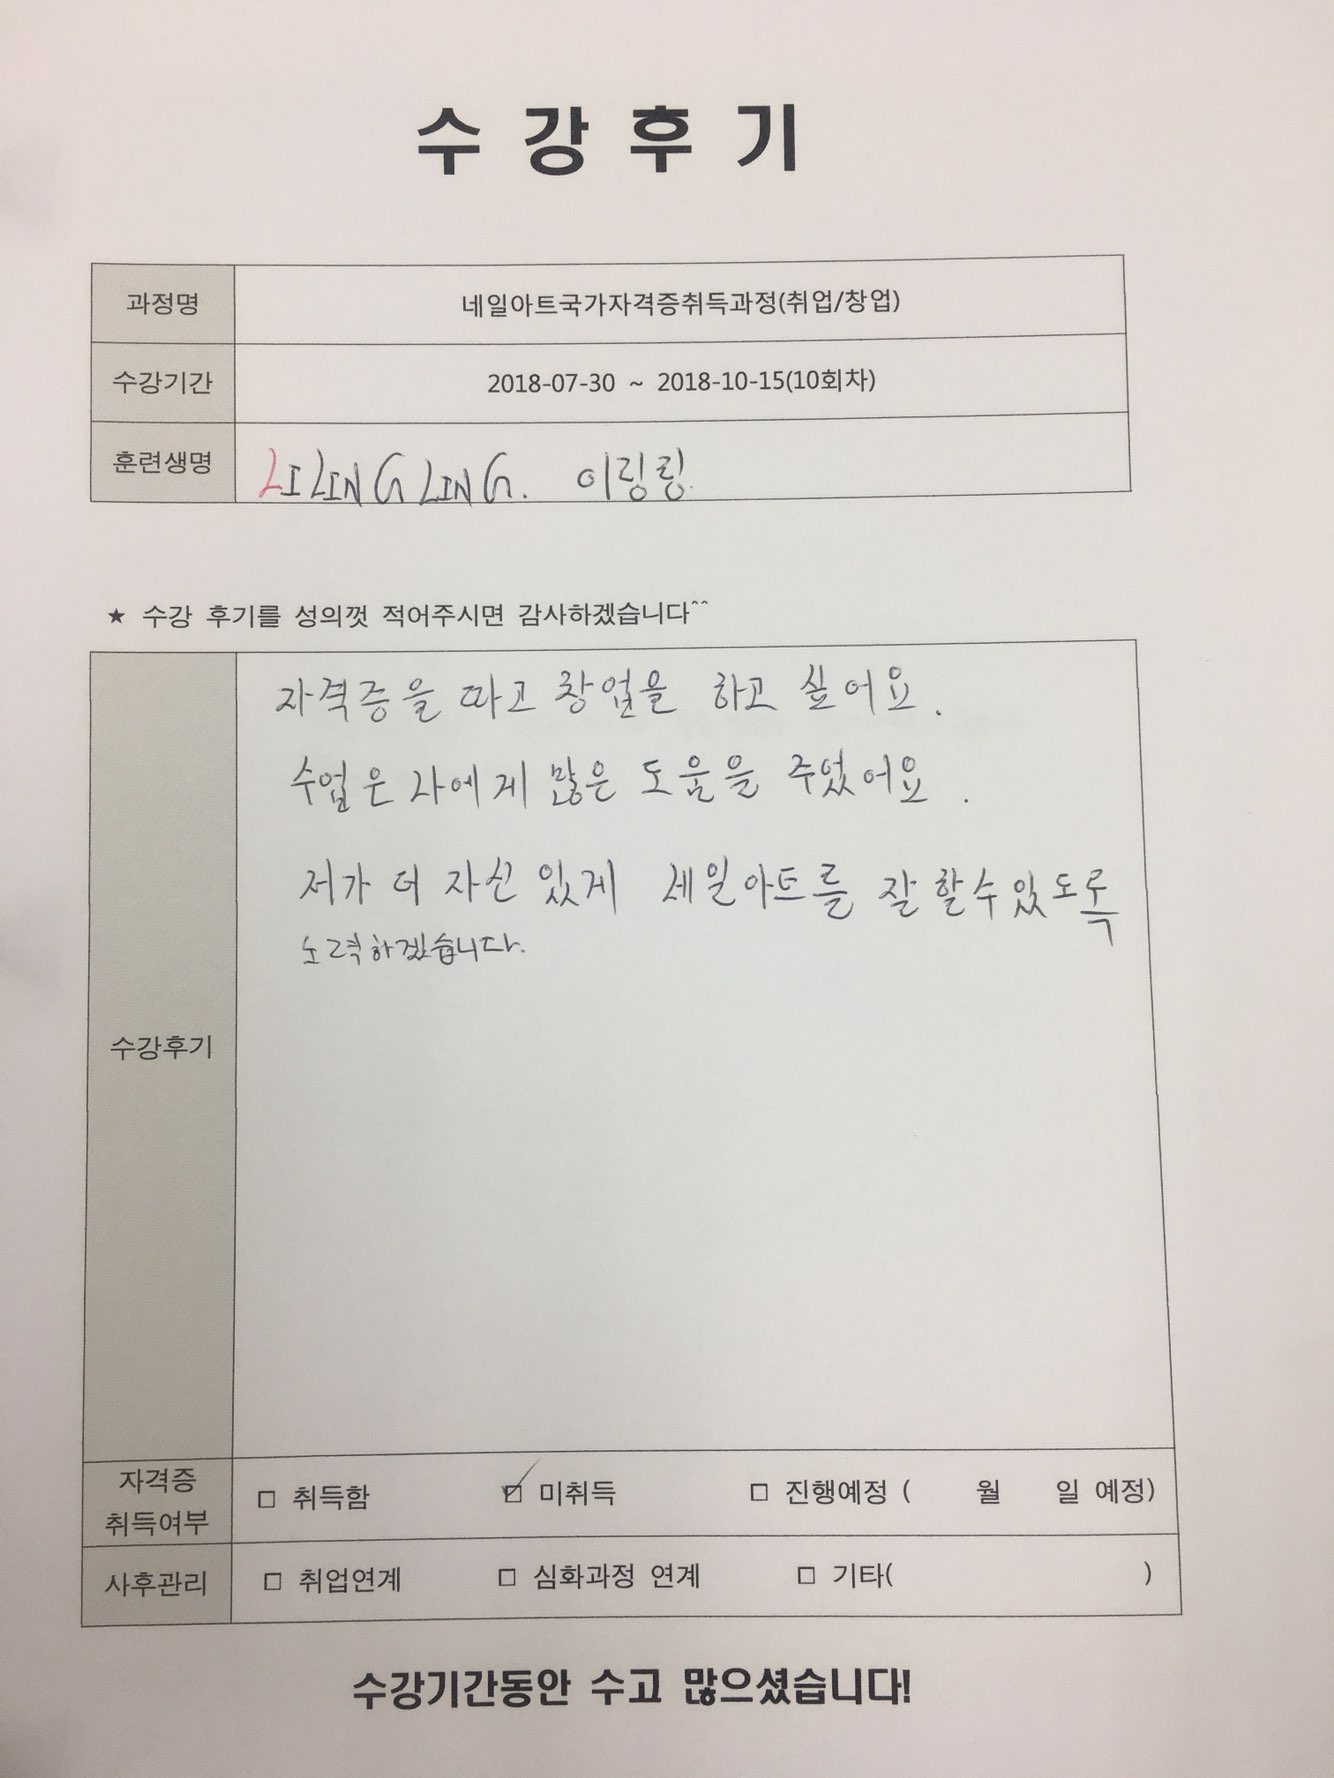 수강후기
과정명 네일아트국가자격증취득과정(취업/창업)
수강기간 2018-07-30 ~ 2018-10-15(10회차)
훈련생명 LI LING LING. 이링링.
★ 수강 후기를 성의껏 적어주시면 감사하겠습니다^^
자격증을 따고 창업을 하고 싶어요.
수업은 나에게 많은 도움을 주었어요.
저가 더 자신 있게 네일아트를 잘 할수 있도록
노력하겠습니다.
수강후기
자격증
취득여부
□ 취득함 ☑ 미취득 □ 진행예정 ( 월 일 예정)
사후관리 □ 취업연계 □ 심화과정 연계 □ 기타( )
수강기간동안 수고 많으셨습니다!